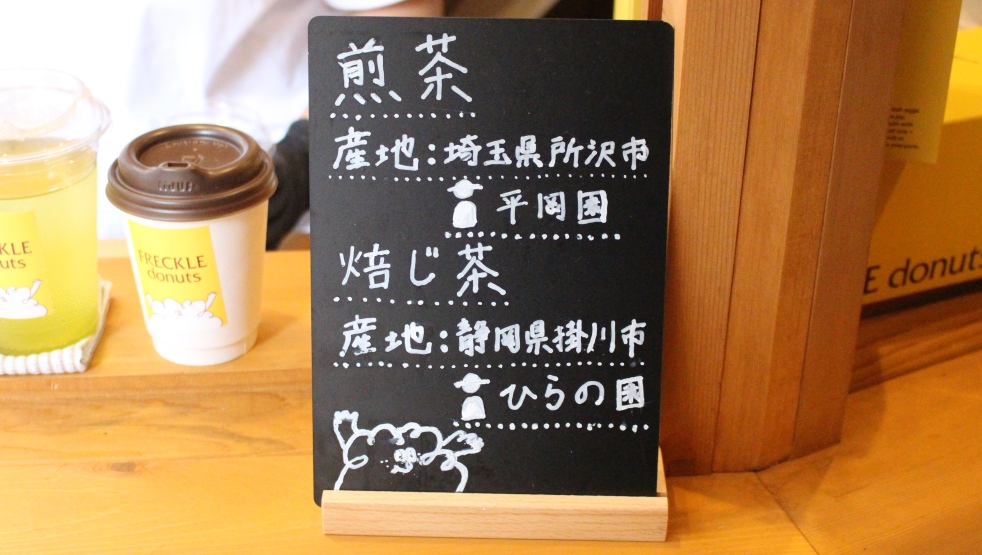 煎茶
産地：埼玉県所沢市
平岡園
焙じ茶
産地：静岡県掛川市
ひらの園
KLE
uts
FRECKLE
donuts
E donuts